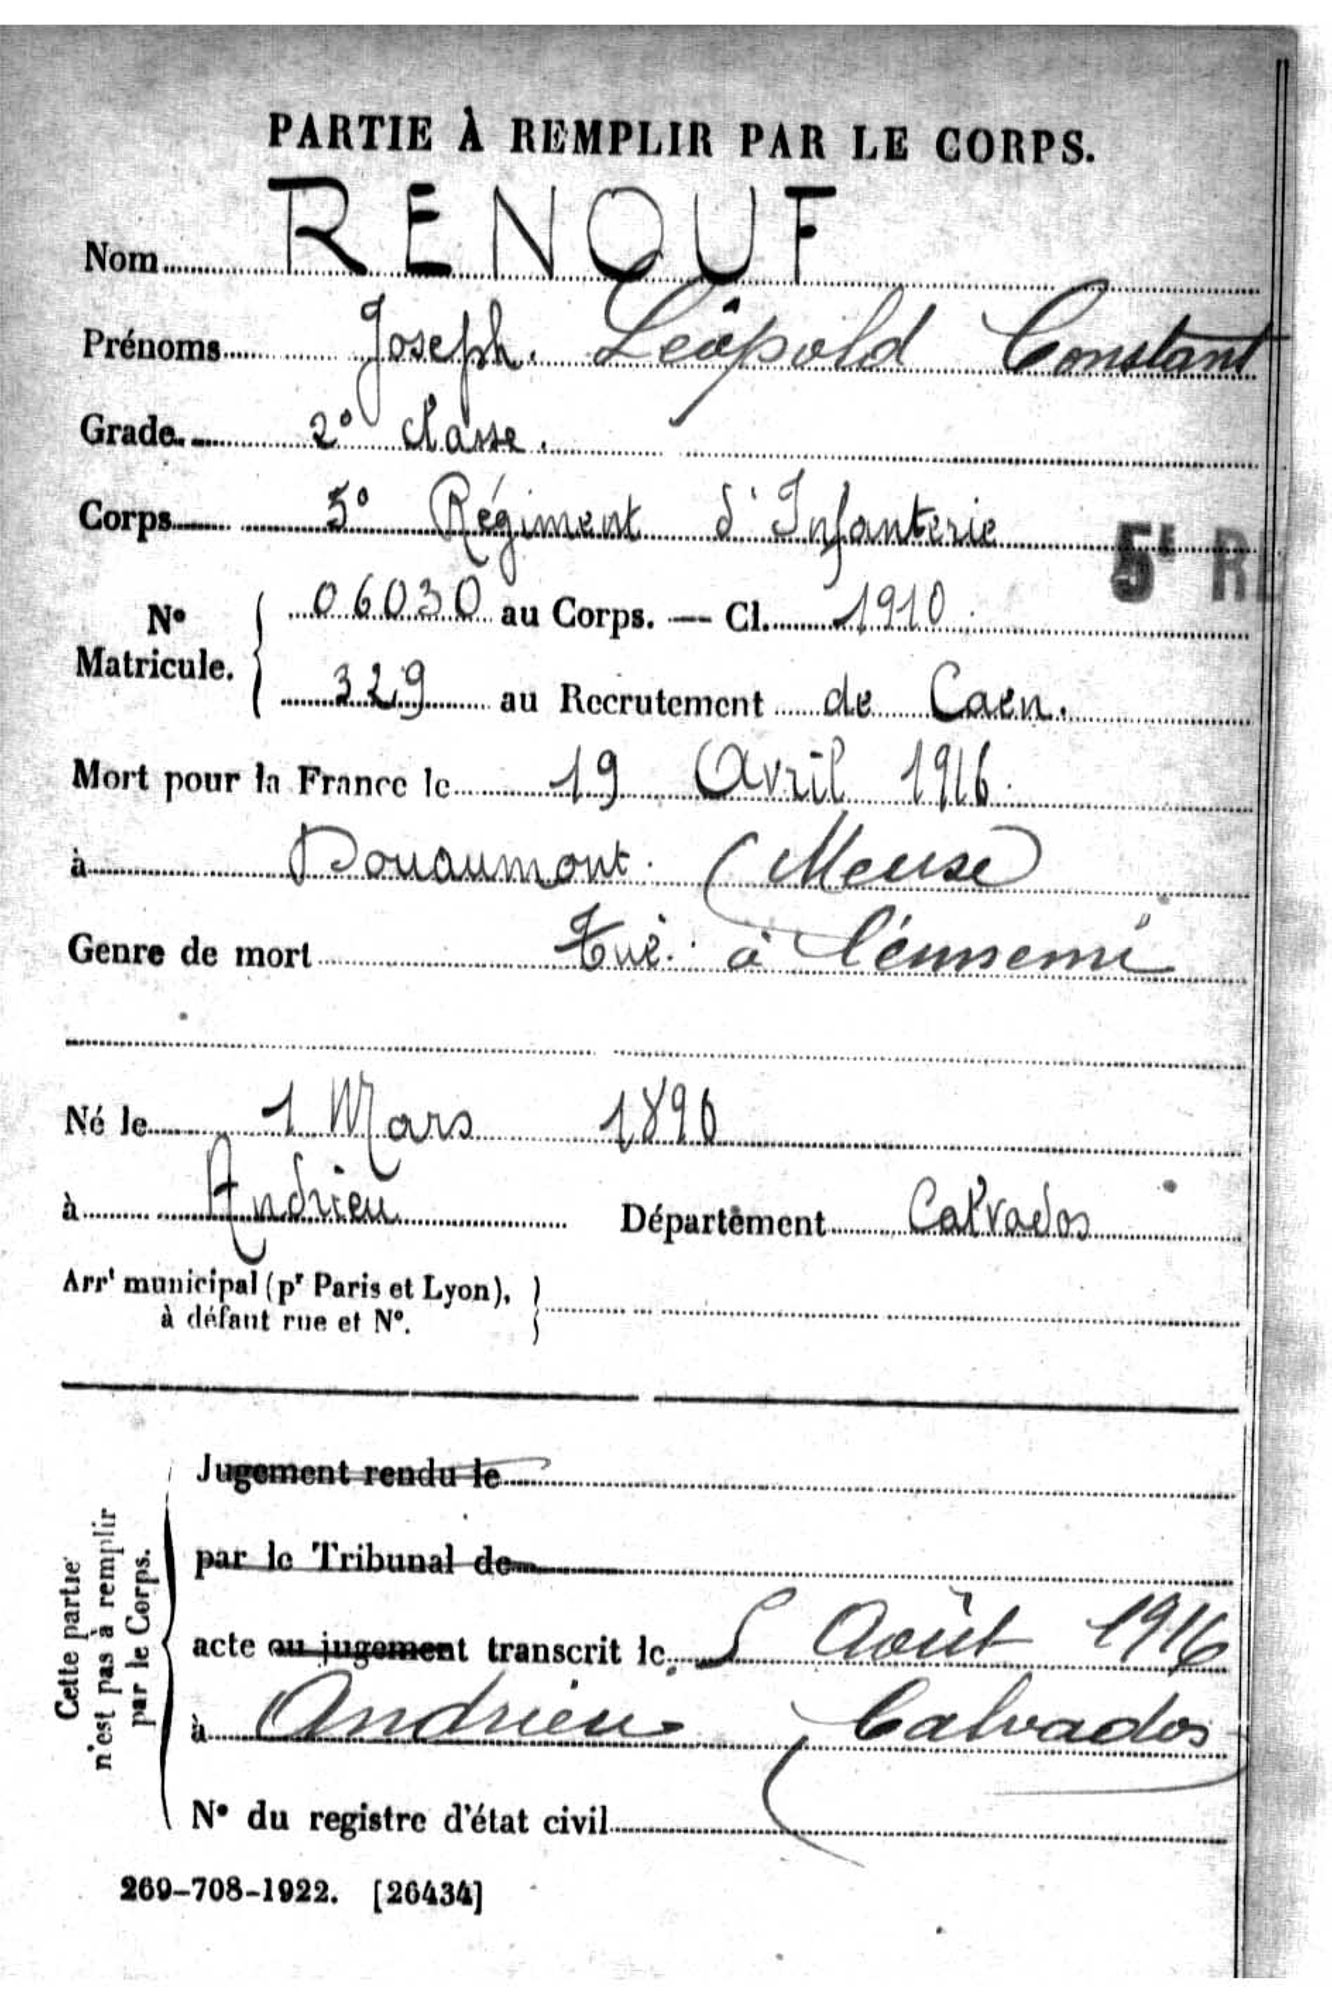 PARTIE À REMPLIR PAR LE CORPS.
Nom RENOUF
Prénoms Joseph. Léopold Constant
Grade 2e classe.
Corps 5e Régiment d'Infanterie
5e RE
No Matricule. 06030 au Corps. — Cl. 1910
329 au Recrutement de Caen.
Mort pour la France le 19 Avril 1916.
à Douaumont. (Meuse)
Genre de mort Tué. à l'ennemi
Né le 1 Mars 1890
à Andrieu Département Calvados
Arrt municipal (pr Paris et Lyon),
à défaut rue et No.
Cette partie
n'est pas à remplir
par le Corps.
Jugement rendu le
par le Tribunal de
acte ou jugement transcrit le 5 Août 1916
à Andrieu (Calvados
No du registre d'état civil
269-708-1922. [26434]